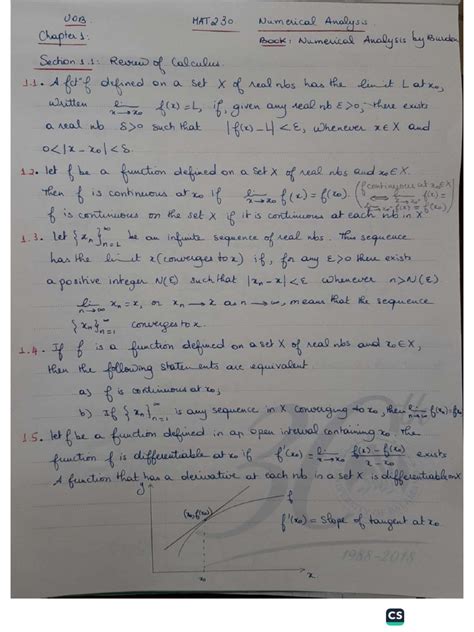 UOB MAT230 Numerical Analysis
Chapter 1: Book: Numerical Analysis by Burden
Section 1.1: Review of Calculus
1.1. A fctn f defined on a set X of real nbs has the limit L at x₀,
written lim x→x₀ f(x) = L, if, given any real nb ε>0, there exists
a real nb δ>0 such that |f(x)-L|<ε, whenever x∈X and
0<|x-x₀|<δ.
1.2. let f be a function defined on a set X of real nbs and x₀∈X.
Then f is continuous at x₀ if lim x→x₀ f(x) = f(x₀). (f continuous at x₀∈X
f is continuous on the set X if it is continuous at each nb in X
1.3. let {xₙ}∞ n=1 be an infinite sequence of real nbs. This sequence
has the limit x (converges to x) if, for any ε>0 there exists
a positive integer N(ε) such that |xₙ-x|<ε whenever n>N(ε).
lim n→∞ xₙ = x, or xₙ → x as n→∞, means that the sequence
{xₙ}∞ n=1 converges to x.
1.4. If f is a function defined on a set X of real nbs and x₀∈X,
then the following statements are equivalent
a) f is continuous at x₀;
b) If {xₙ}∞ n=1 is any sequence in X converging to x₀, then lim n→∞ f(xₙ)=f(x₀)
1.5. let f be a function defined in an open interval containing x₀. The
function f is differentiable at x₀ if f'(x₀) = lim x→x₀ f(x)-f(x₀) / x-x₀ exists
A function that has a derivative at each nb in a set X is differentiable on X
y
f
(x₀,f(x₀))
f'(x₀) = slope of tangent at x₀
1988-2018
x₀ x
CS